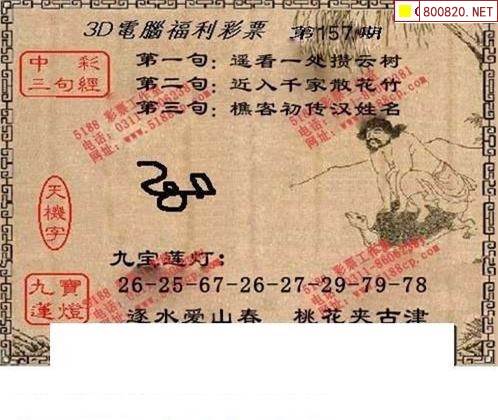 800820.NET
3D電腦福利彩票 第157期
中彩三句經
第一句：遥看一处攒云树
第二句：近入千家散花竹
第三句：樵客初传汉姓名
5188 彩票工作室
网址：www.5188cp.com
天機字
九宝莲灯：
九寶蓮燈
26-25-67-26-27-29-79-78
逐水爱山春 桃花夹古津